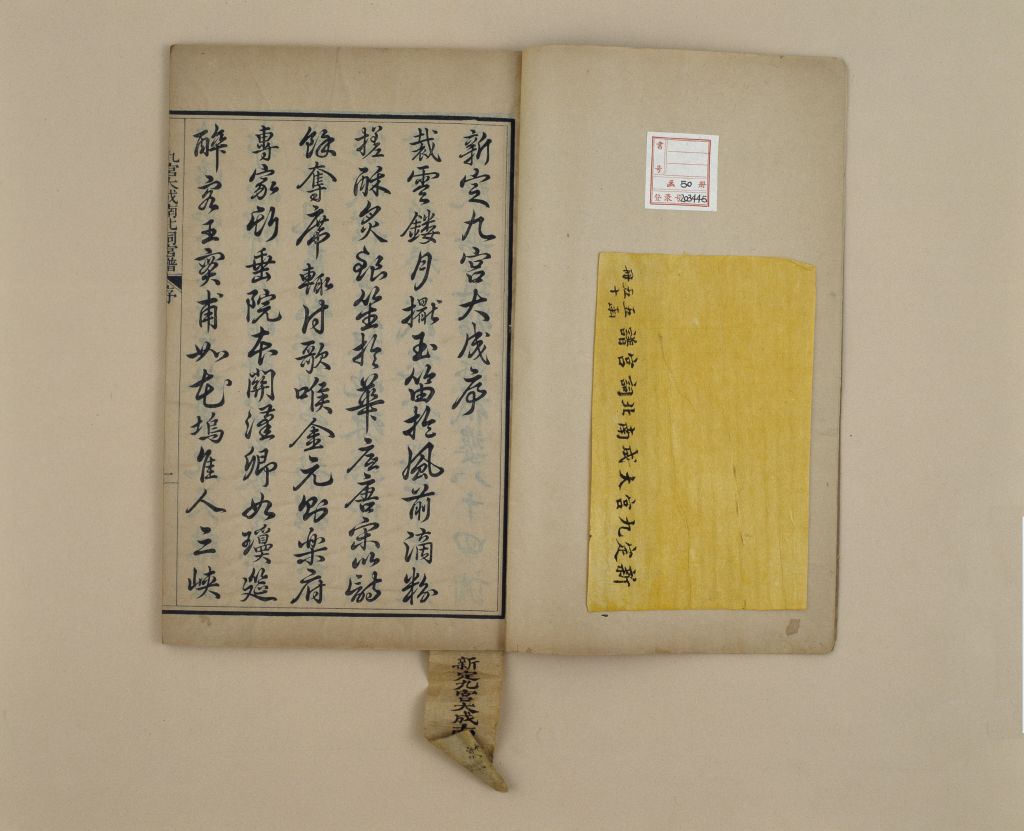 書号
函 50 册
登录号 203445
新定九宮大成南北詞宮譜
五函
五十冊
新定九宮大成序
裁雲鏤月擫玉笛於風前滴粉
搓酥炙銀笙於華底唐宋以詩
餘奪席輒付歌喉金元則樂府
專家所垂院本關漢卿如瓊筵
醉客王實甫如花塢佳人三峽
九宮大成南北詞宮譜 序 一
新定九宮大成南